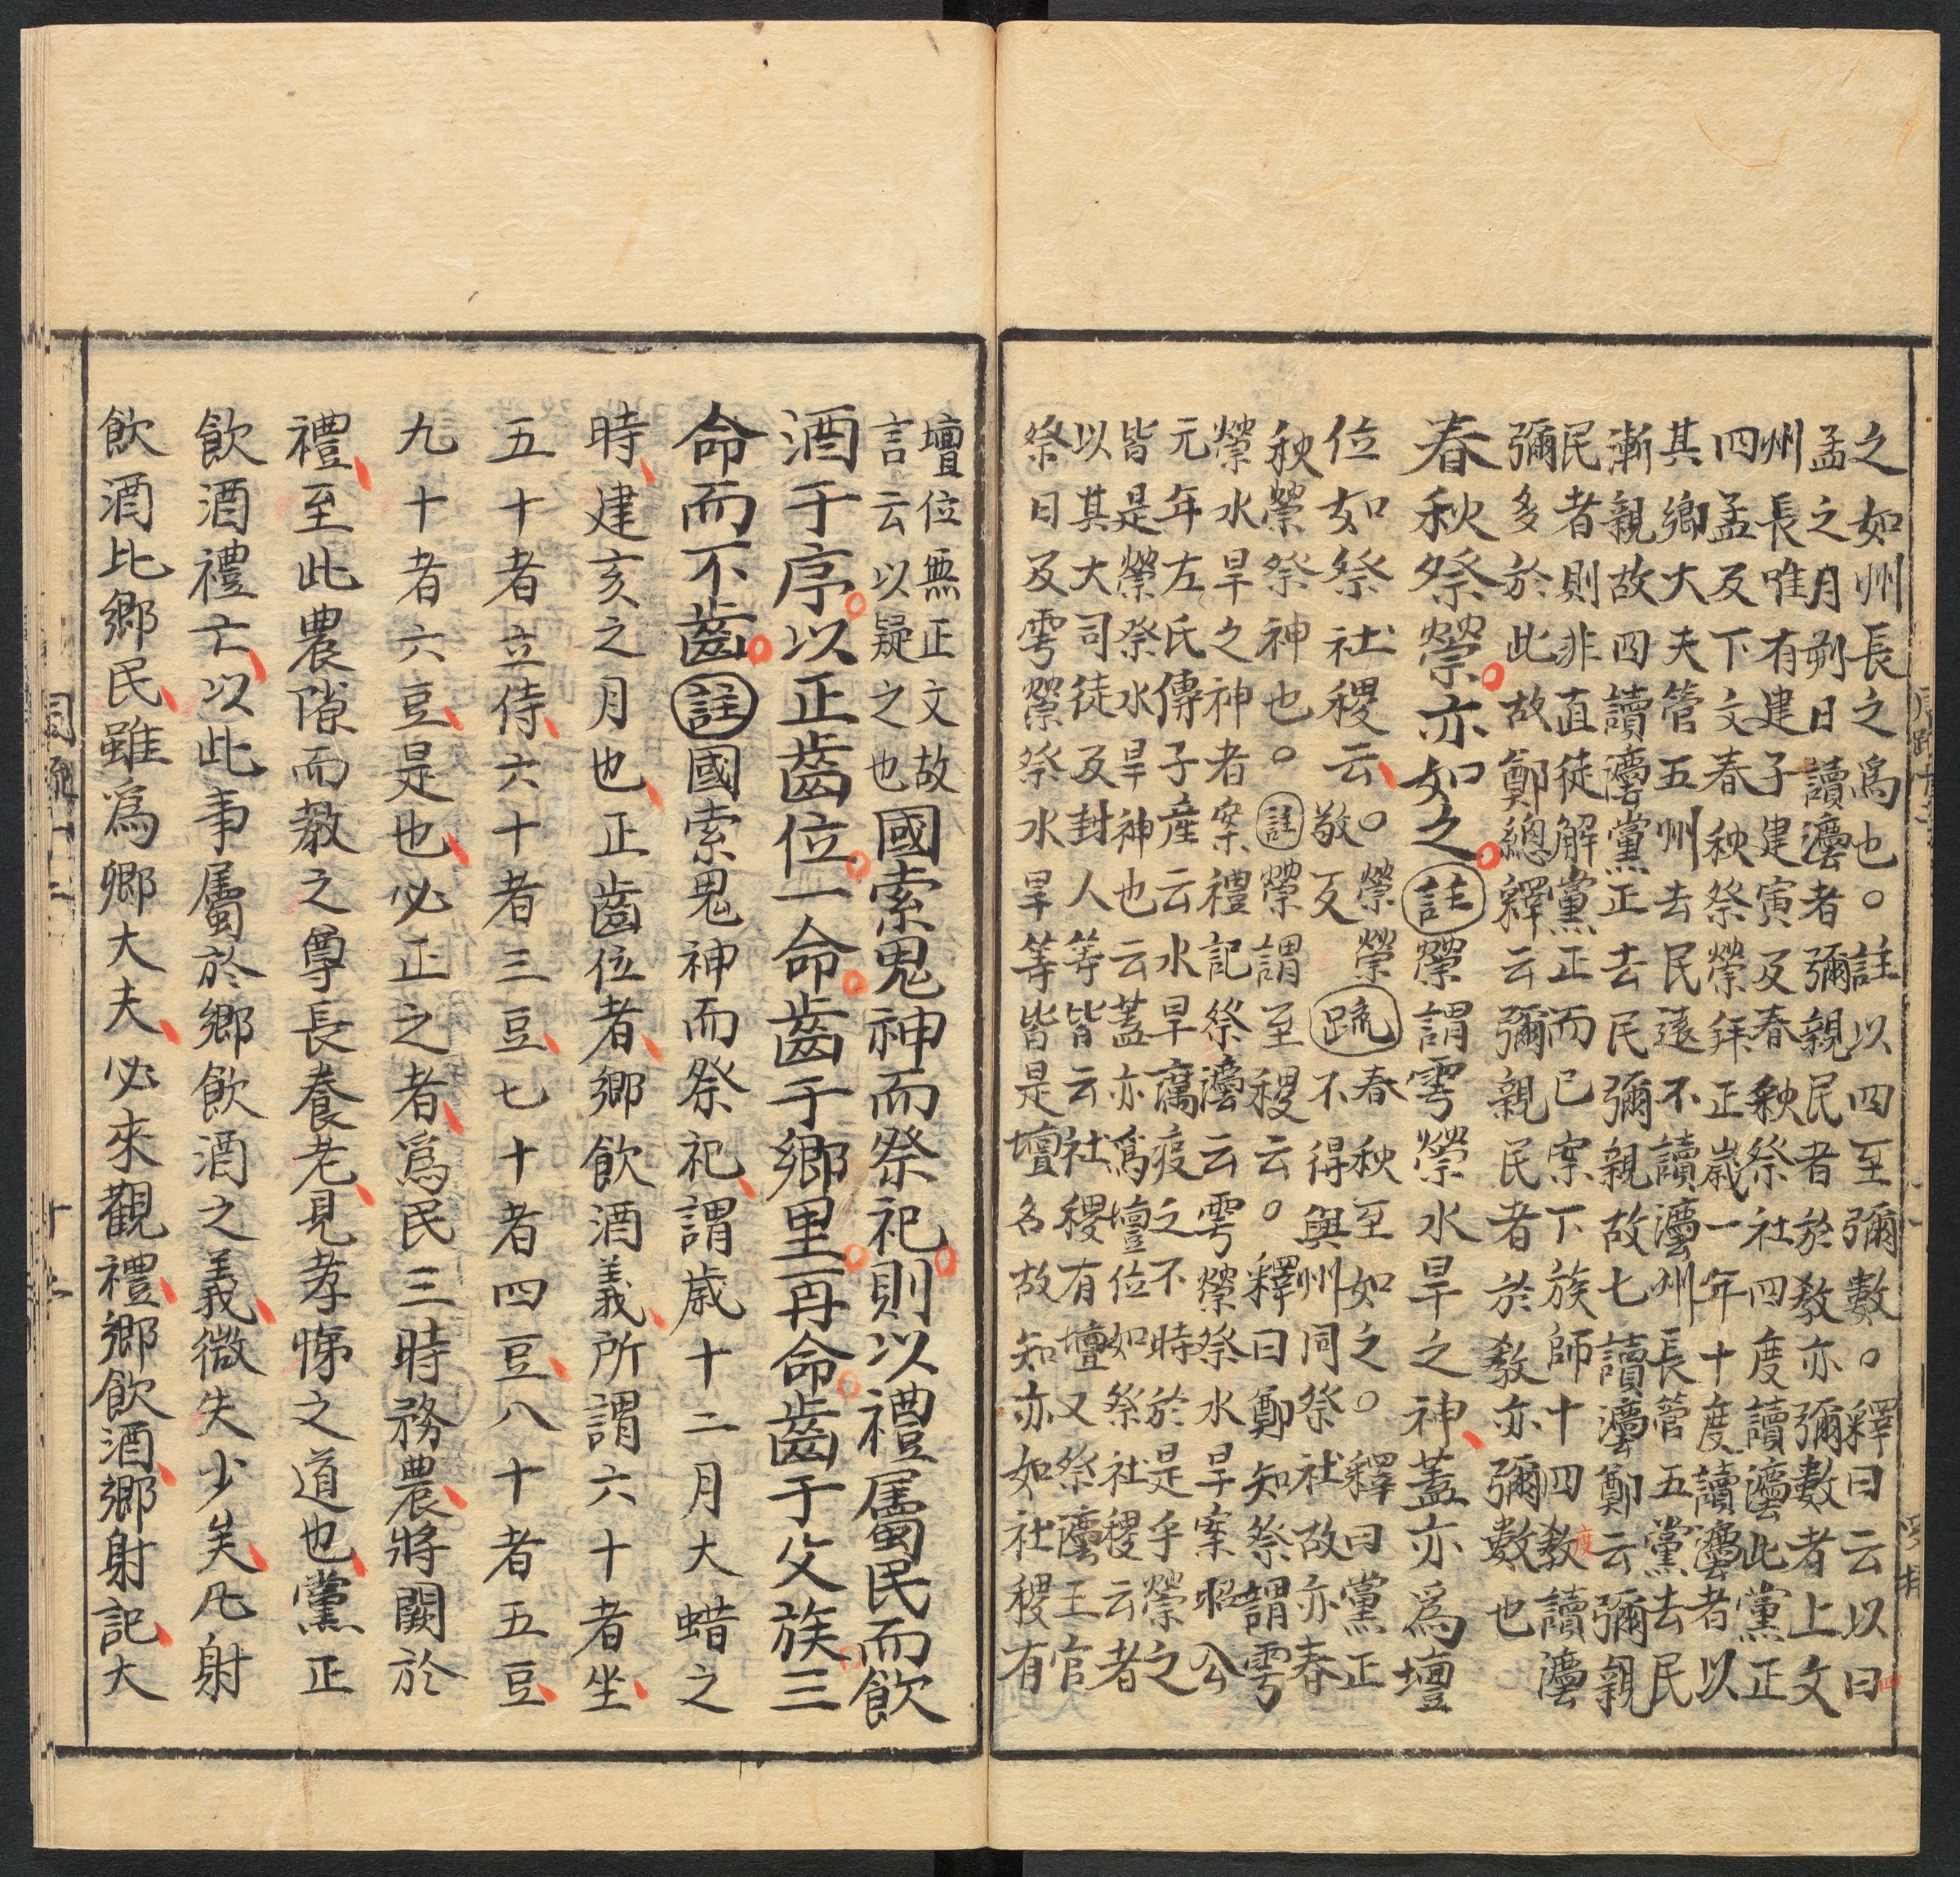 之如州長之爲也。註以四至彌數。釋曰云以曰四
孟之月朔日讀灋者彌親民者於敎亦彌數者上文
州長唯有建子建寅及春秋祭社四度讀灋此黨正
四孟及下文春秋祭禜并正歲一年十度讀灋者以
其鄉大夫管五州去民遠不讀灋州長管五黨去民
漸親故四讀灋黨正去民彌親故七讀灋鄭云彌親
民者則非直徒解黨正而已案下族師十四敎度讀灋
彌多於此故鄭總釋云彌親民者於敎亦彌數也
春秋祭禜亦如之註禜謂雩禜水旱之神蓋亦爲壇
位如祭社稷云。禜禜敬反疏春秋至如之。釋曰黨正
不得與州同祭社故亦春
秋禜祭神也。註禜謂至稷云。釋曰鄭知祭謂雩
禜水旱之神者案禮記祭灋云雩禜祭水旱案昭公
元年左氏傳子產云水旱癘疫之不時於是乎禜之
皆是禜祭水旱神也云蓋亦爲壇位如祭社稷云者
以其大司徒及封人等皆云社稷有壇又祭灋王官
祭日及雩禜祭水旱等皆是壇名故知亦如社稷有
壇位無正文故
言云以疑之也國索鬼神而祭祀則以禮屬民而飲
酒于序以正齒位一命齒于鄉里再命齒于父族三
命而不齒註國索鬼神而祭祀謂歲十二月大蜡之
時建亥之月也正齒位者鄉飲酒義所謂六十者坐
五十者立侍六十者三豆七十者四豆八十者五豆
九十者六豆是也必正之者爲民三時務農將闕於
禮至此農隙而教之尊長養老見孝悌之道也黨正
飲酒禮亡以此事屬於鄉飲酒之義微失少矣凡射
飲酒比鄉民雖爲鄉大夫必來觀禮鄉飲酒鄉射記大